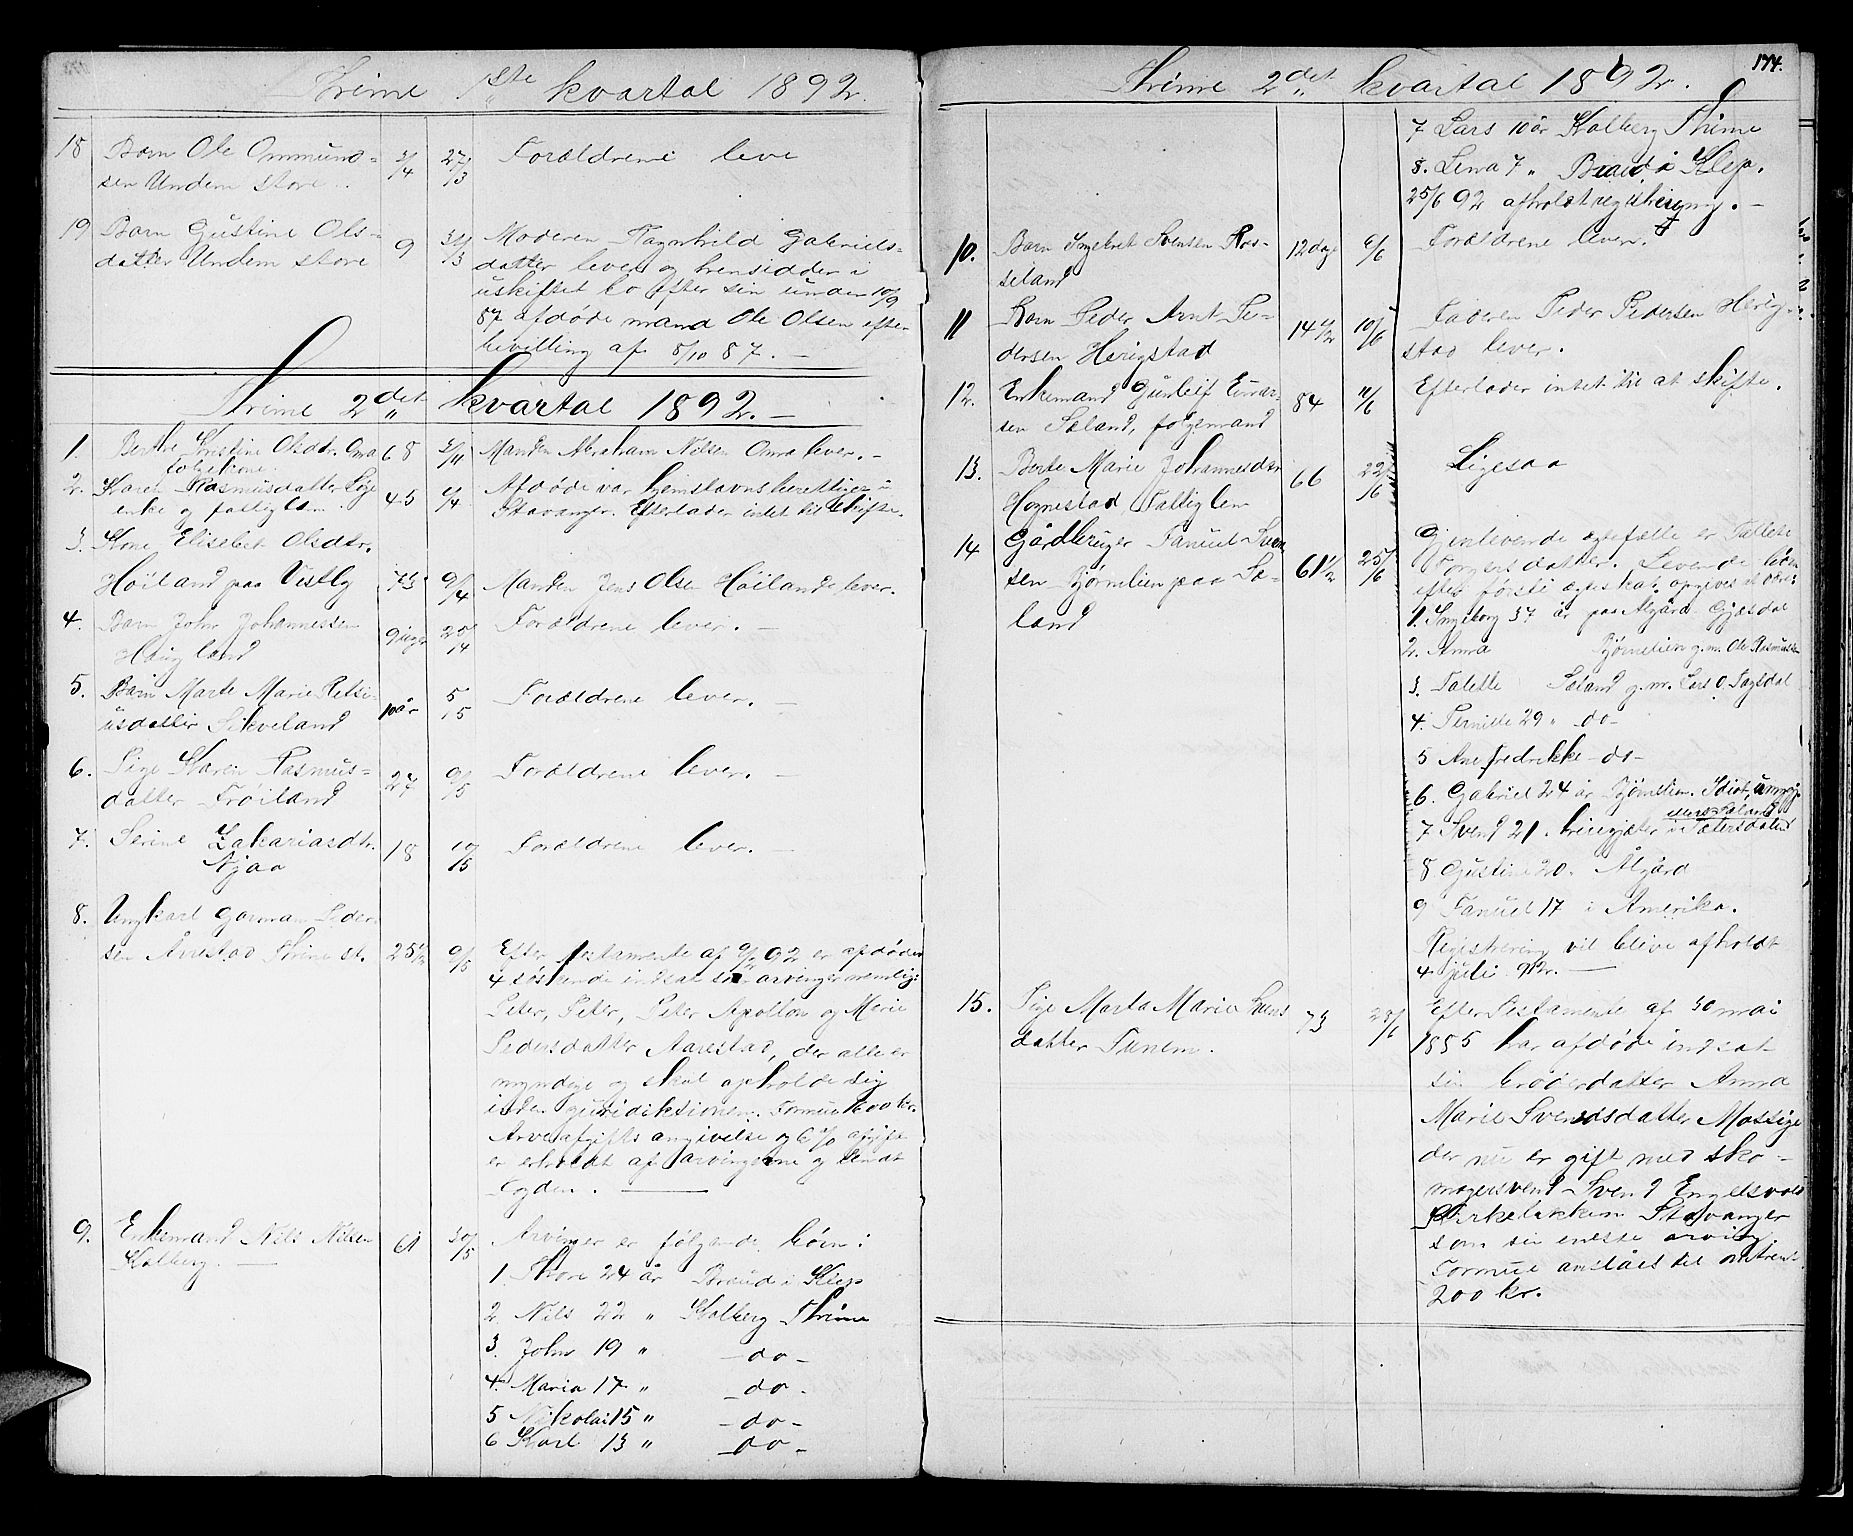 Thime 1ste kvartal 1892.
18 Barn Ole Ommund-
sen Undem store 3/4 27/3 Forældrene leve
19 Barn Gustine Ols-
datter Undem store 9 31/3 Moderen Ragnhild Gabriels-
datter lever og hensidder i
uskiftet bo efter sin under 10/9
87 afdøde mand Ole Olsen efter
bevilling af 5/10 87. —
Thime 2det kvartal 1892. —
1. Berthe Kristine Olsdtr. Oma 68 3/4 Manden Abraham Nilsen Oma lever. —
folgekone
2. Karen Rasmusdatter Lye 45 6/4 Afdøde var hjemstavnsberettiget i
enke og fattiglem. Stavanger. Efterlader intet til skifte.
3. Kone Elisabet Olsdtr.
Høiland paa Vestly 73 9/4 Manden Jens Olsen Høiland lever.
4. Barn John Johannessen
Haugland 9 uger 20/4 Forældrene lever. —
5. Barn Marte Marie Retsi-
usdatter Sikveland 10 år 5/5 Forældrene lever. —
6. Pige Karen Rasmus-
datter Frøiland 27 9/5 Forældrene lever. —
7. Serine Zakariasdtr.
Njaa 18 10/5 Forældrene lever. —
8. Ungkarl Gorman Peder-
sen Årestad Thime st. 25 1/2 9/5 Efter testamente af 9/2 92 er afdødes
4 søskende indsat som arvinger nemlig:
Peter, Peter, Peter Apollon og Marie
Pedersdatter Aarestad, der alle er
myndige og skal opholde sig
inden juridiktionen. Formue 1600 kr.
Arveafgifts angivelse og 6% afgift
er erholdt af arvingerne og sendt
fogden. —
9. Enkemand Nils Nilsen
Kalberg. — 61 30/5 Arvinger er følgende børn:
1 Thore 24 år Braud i Klep
2. Nils 22 " Kalberg Thime
3. John 19 " — do —
4. Maria 17 " — do —
5 Nikolai 15 " — do —
6 Karl 13 " — do —
174.
Thime 2det kvartal 1892.
7 Lars 10 år Kalberg Thime
8. Lena 7 " Braud i Klep.
25/6 92 afholdt registrering. —
10. Barn Ingebret Svensen Ros-
seland 12 dage 6/6 Forældrene lever.
11 Barn Peder Arnt Pe-
dersen Herigstad 14 1/2 10/6 Faderen Peder Pedersen Herig-
stad lever.
12. Enkemand Gunleif Einar-
sen Sæland, folgemand 84 11/6 Efterlader intet til at skifte.
13. Berte Marie Johannesdtr
Hognestad Fattiglem 66 22/6 Ligesaa
14 Gårdbruger Fanuel Sven
sen Bjørnelien paa Sæ-
land 61 1/2 25/6 Gjenlevende ægtefælle er Tallete
Torgersdatter. Levende børn
efter første ægteskab opgives at være:
1. Ingeborg 37 år paa Algård Gjesdal
2. Anna Bjørnelien g.m. Ole Rasmussen
3. Talette Sæland g.m. Lars O. Fagsdal
4. Pernille 29 " — do —
5 Ane Fredrikke — do —
6. Gabriel 24 år Bjørnelien. Idiot, umyn.
7 Svend 21. hirегjæter i Sætersdalen
ellers Sæland
8 Gustine 20. Ålgård
9 Fanuel 17 i Amerika.
Registrering vil blive afholdt
4 juli 92. —
15. Pige Marta Marie Svens
datter Tunem. 73 28/6 Efter Testamente af 30 mai
1885 har afdøde indsat
sin broderdatter Anna
Marie Svendsdatter Mossige
der nu er gift med sko-
magersvend Svend Engelsvold
Kirkebakken Stavanger
som sin eneste arving.
Formue anslåes til omtrent
200 kr.